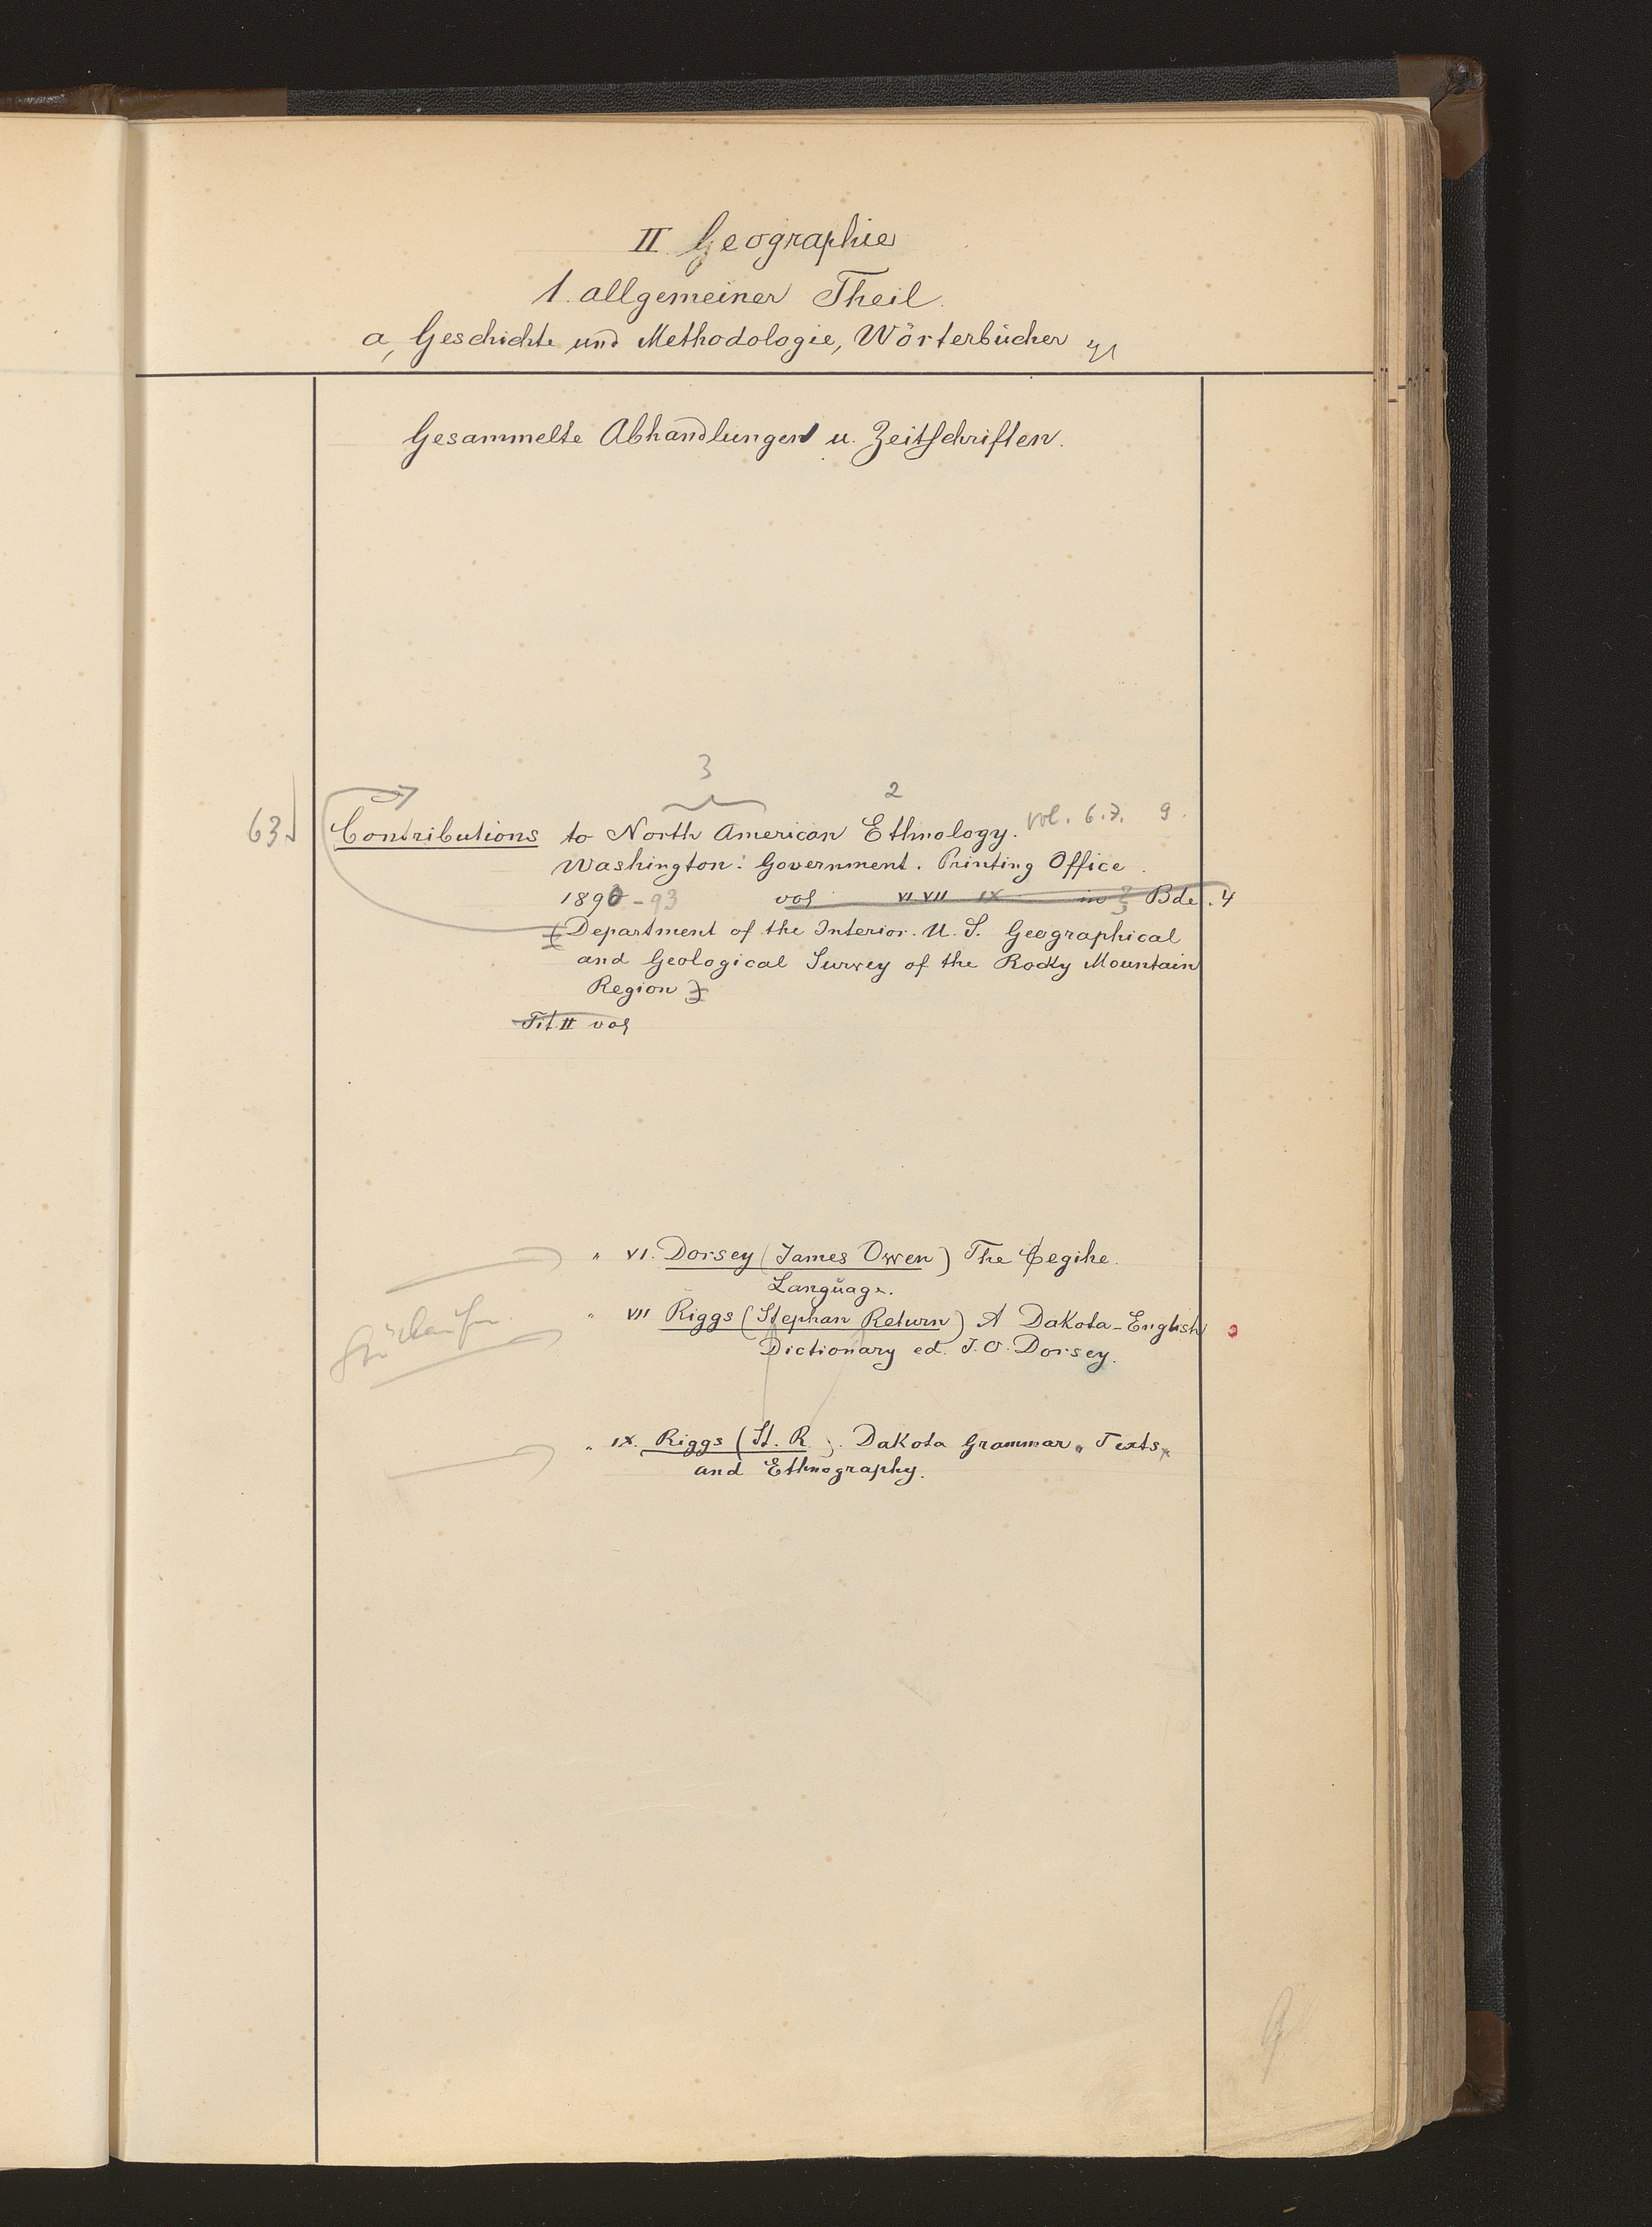 II Geographie
1. allgemeiner Theil.
a, Geschichte und Methodologie, Wörterbücher
Gesammelte Abhandlungen u. Zeitschriften.
3
2
63
Contributions to North American Ethnology. vol. 6.7. 9.
Washington: Government. Printing Office.
1890-93 vol VI VII IX in 3 Bde. 4
(Department of the Interior. U. S. Geographical
and Geological Survey of the Rocky Mountain
Region)
Tit. II vol
" VI. Dorsey (James Owen) The Ȼegihe.
Language.
" VII Riggs (Stephan Return) A Dakota-English
Dictionary ed. J. O. Dorsey.
" IX. Riggs (St. R.). Dakota Grammar, Texts,
and Ethnography.